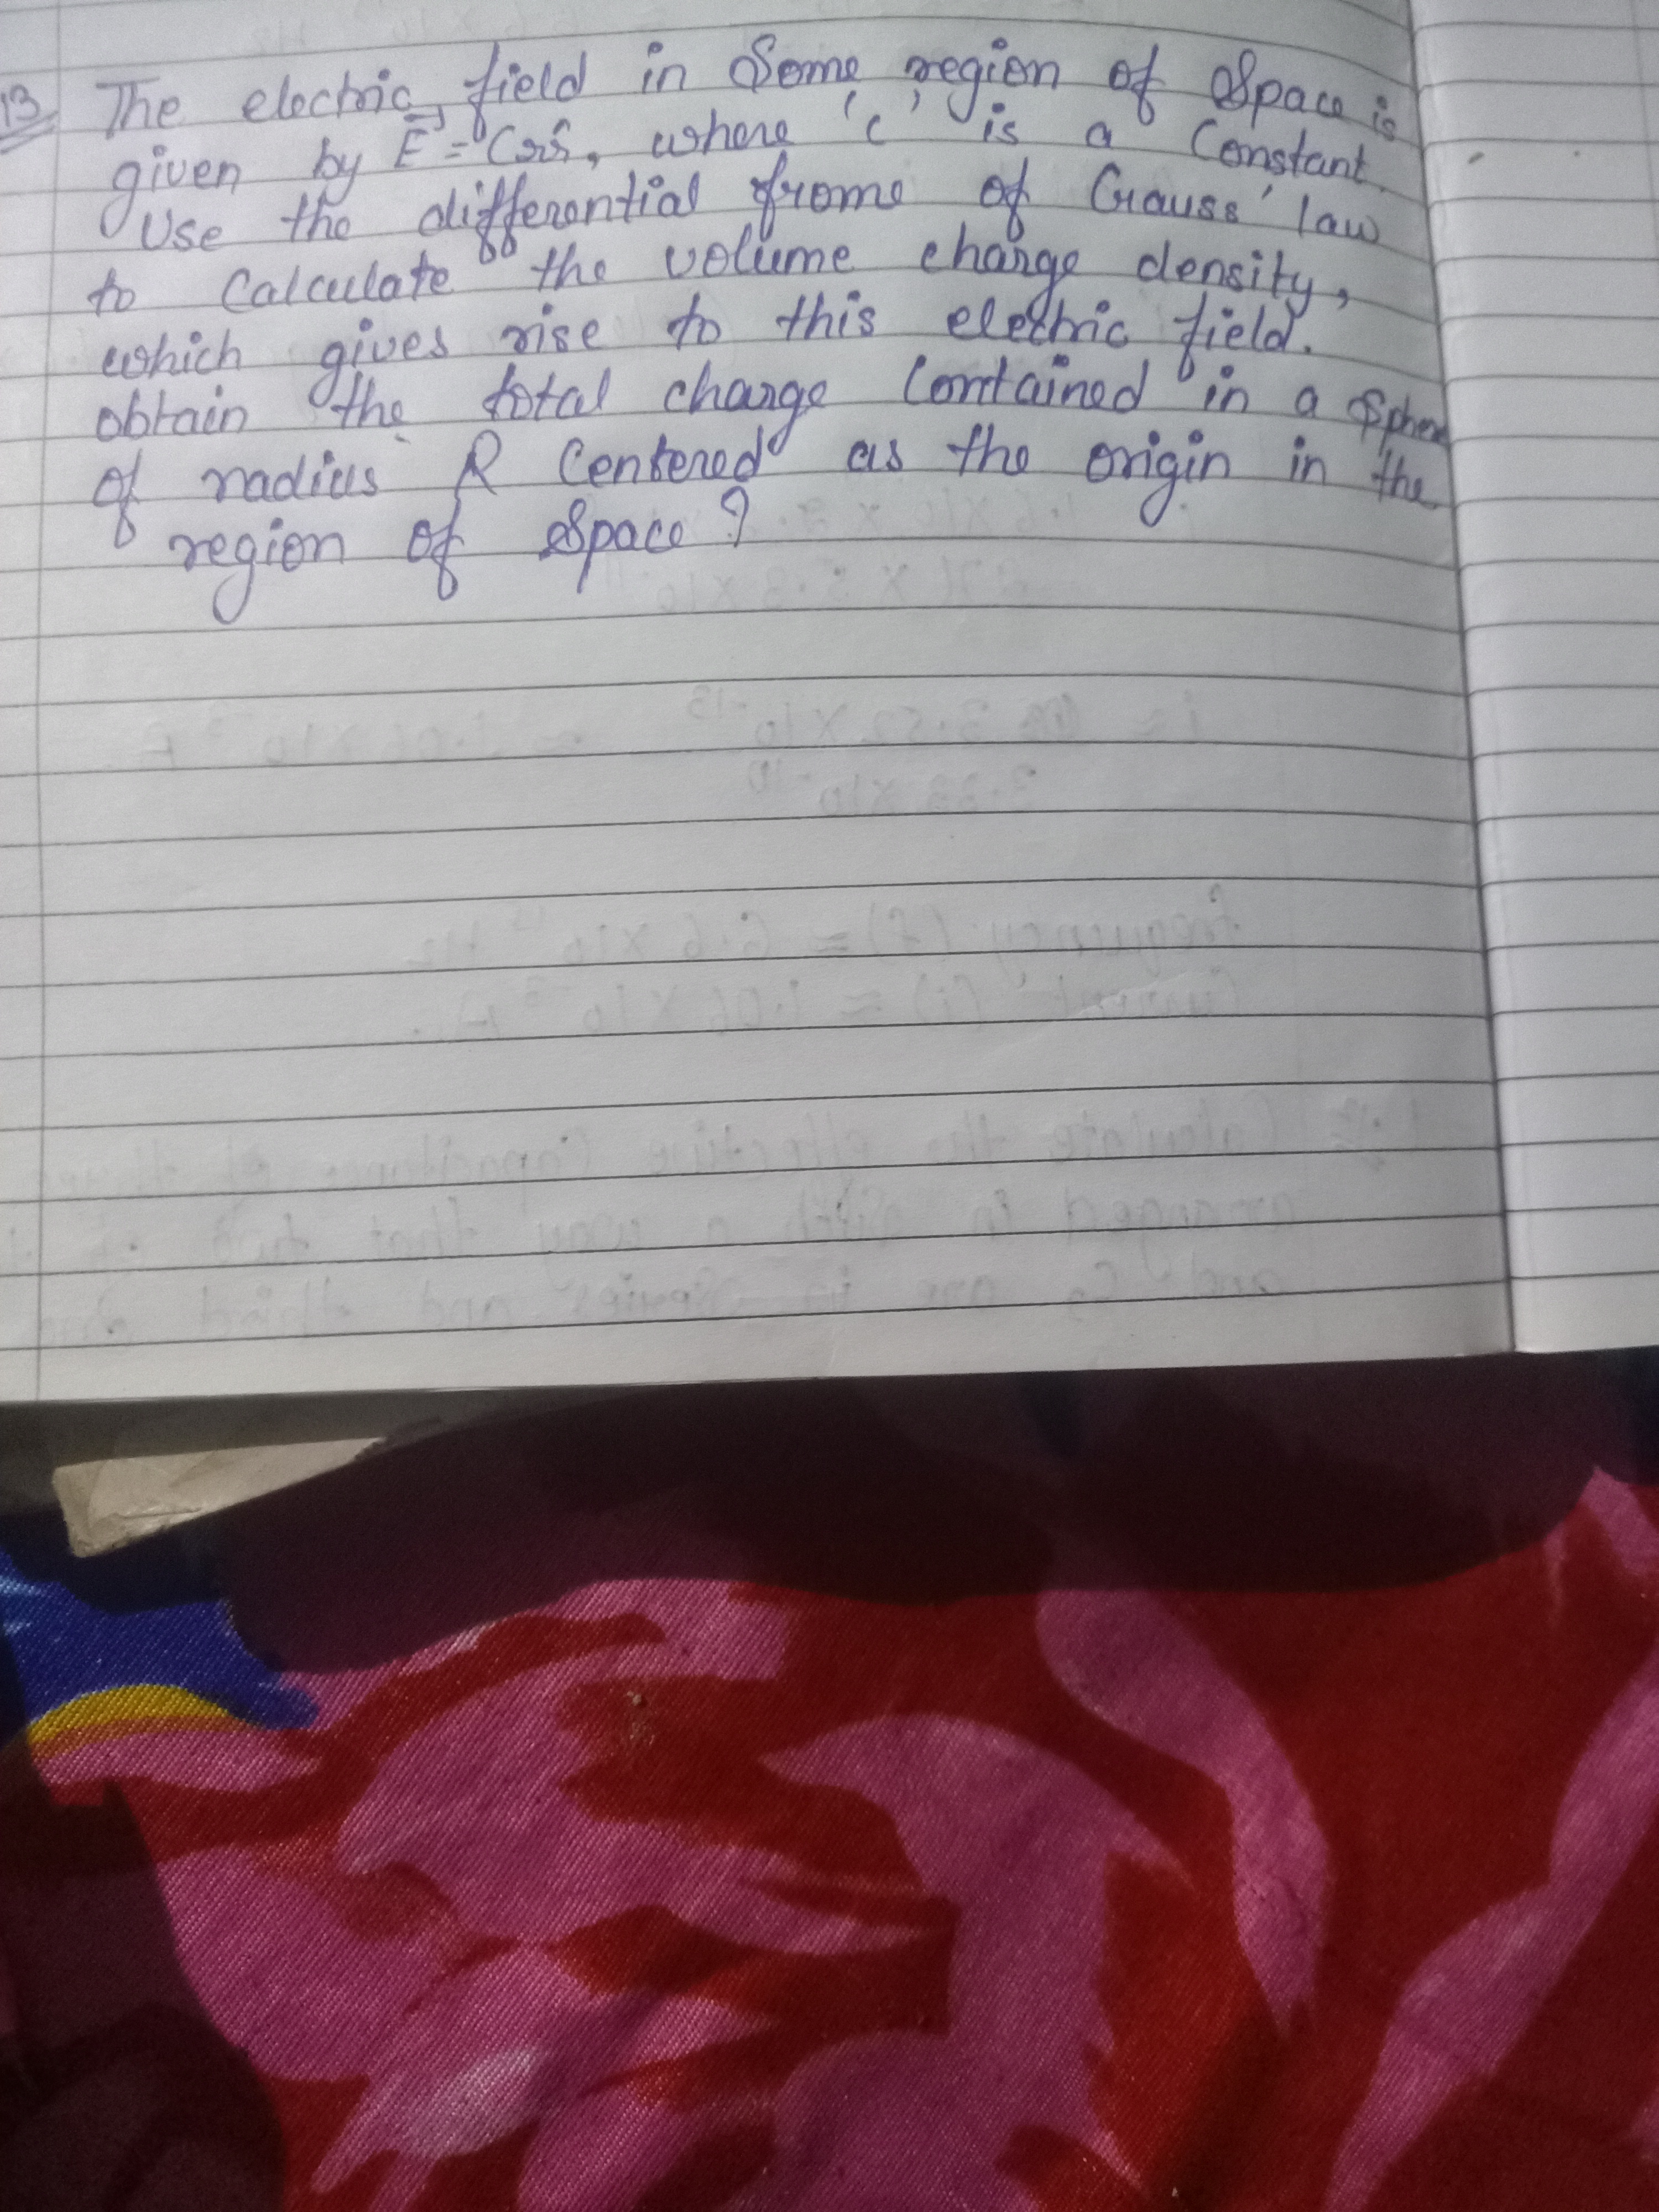 13 The electric field in Some region of Space is
given by E⃗ = Crr̂, where 'c' is a Constant.
Use the differential frome of Gauss' law
to Calculate the volume charge density,
which gives rise to this electric field.
obtain the total charge Contained in a Sphere
of radius R Centered as the origin in the
region of Space?